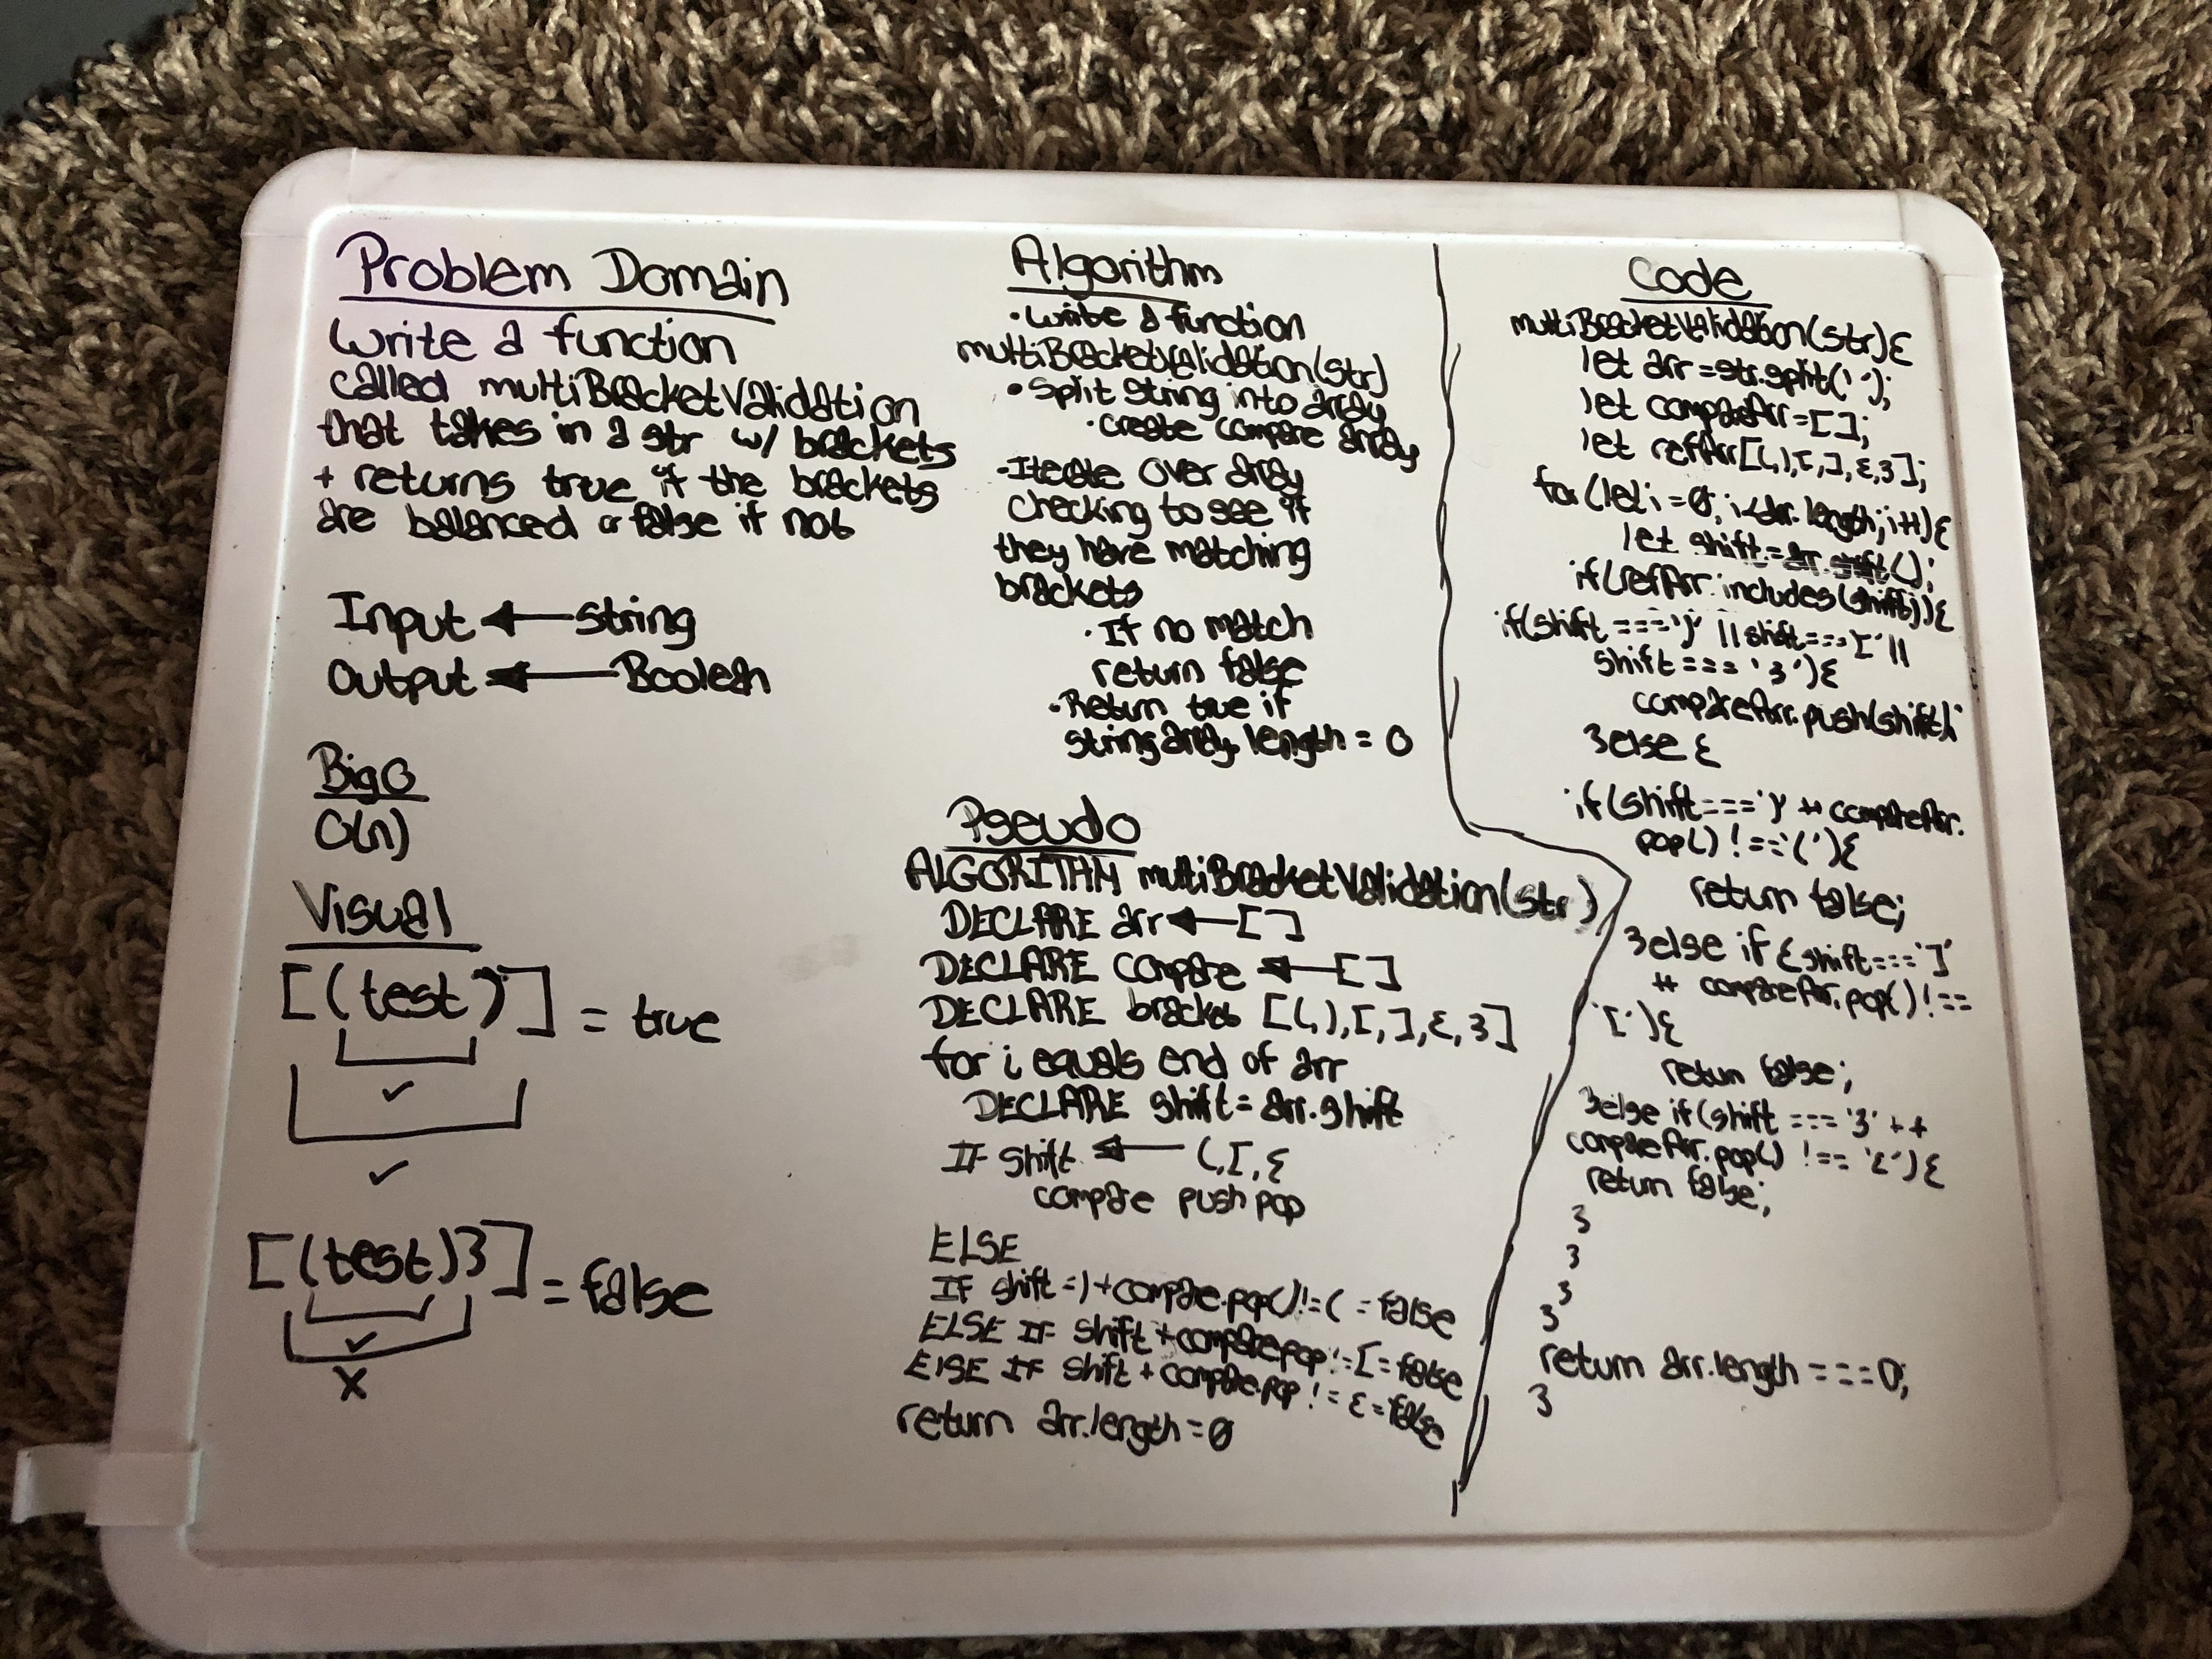 Problem Domain
Write a function
called multiBracketValidation
that takes in a str w/ brackets
+ returns true if the brackets
are balanced or false if not
Input ← string
Output ← Boolean
Big O
O(n)
Visual
[(test)] = true
[(test)}] = false
x
Algorithm
• Write a function
multiBracketValidation(str)
• Split string into array
• create compare array
- Iterate over array
checking to see if
they have matching
brackets
• If no match
return false
• Return true if
string array length = 0
Pseudo
ALGORITHM multiBracketValidation(str)
DECLARE arr ← []
DECLARE compare ← []
DECLARE bracks [(,),[,],{,}]
for i equals end of arr
DECLARE shift = arr.shift
IF shift ← (,[,{
compare push pop
ELSE
IF shift =) + compare.pop() != ( = false
ELSE IF shift + compare pop != [ = false
ELSE IF shift + compare pop != { = false
return arr.length = 0
Code
multiBracketValidation(str){
let arr = str.split('');
let compareArr = [];
let refArr[(,),[,],{,}];
for(let i = 0; i < arr.length; i++){
let shift = arr.shift();
if(refArr.includes(shift)){
if(shift === '(' || shift === '[' ||
shift === '{'){
compareArr.push(shift);
}else {
if(shift === ')' ++ compareArr.
pop() !== '('){
return false;
}else if(shift === ']'
++ compareArr.pop() !==
'['){
return false;
}else if(shift === '}' ++
compareArr.pop() !== '{'){
return false;
}
}
}
}
return arr.length === 0;
}